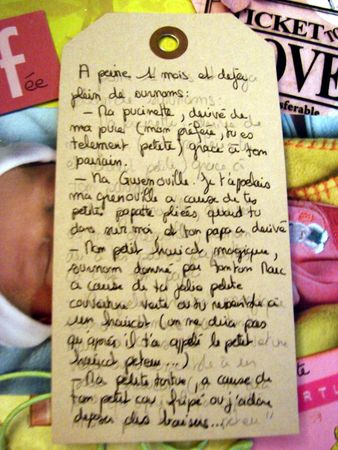 f
ée
TICKET TO
OVE
nsferable
A peine 1 mois et dejà
plein de surnoms:
- Ma pucinette, dérivé de
ma puce (mam préfère, tu es
telement petite) grâce à ton
parrain.
- Ma Gwenouille. Je t'appelais
ma grenouille a cause de tes
petite papate pliées, quand tu
dors sur moi, et ton papa a dérivé
- Mon petit haricot magique,
surnom donné par tonton Marc
a cause de ta jolie petite
couverture verte ou tu ressemble à
un haricot (on ne dira pas
qu'après il t'a appelé le petit
haricot péteur...)
- Ma petite tortue, a cause de
ton petit cou fripé ou j'adore
deposer des baisers...